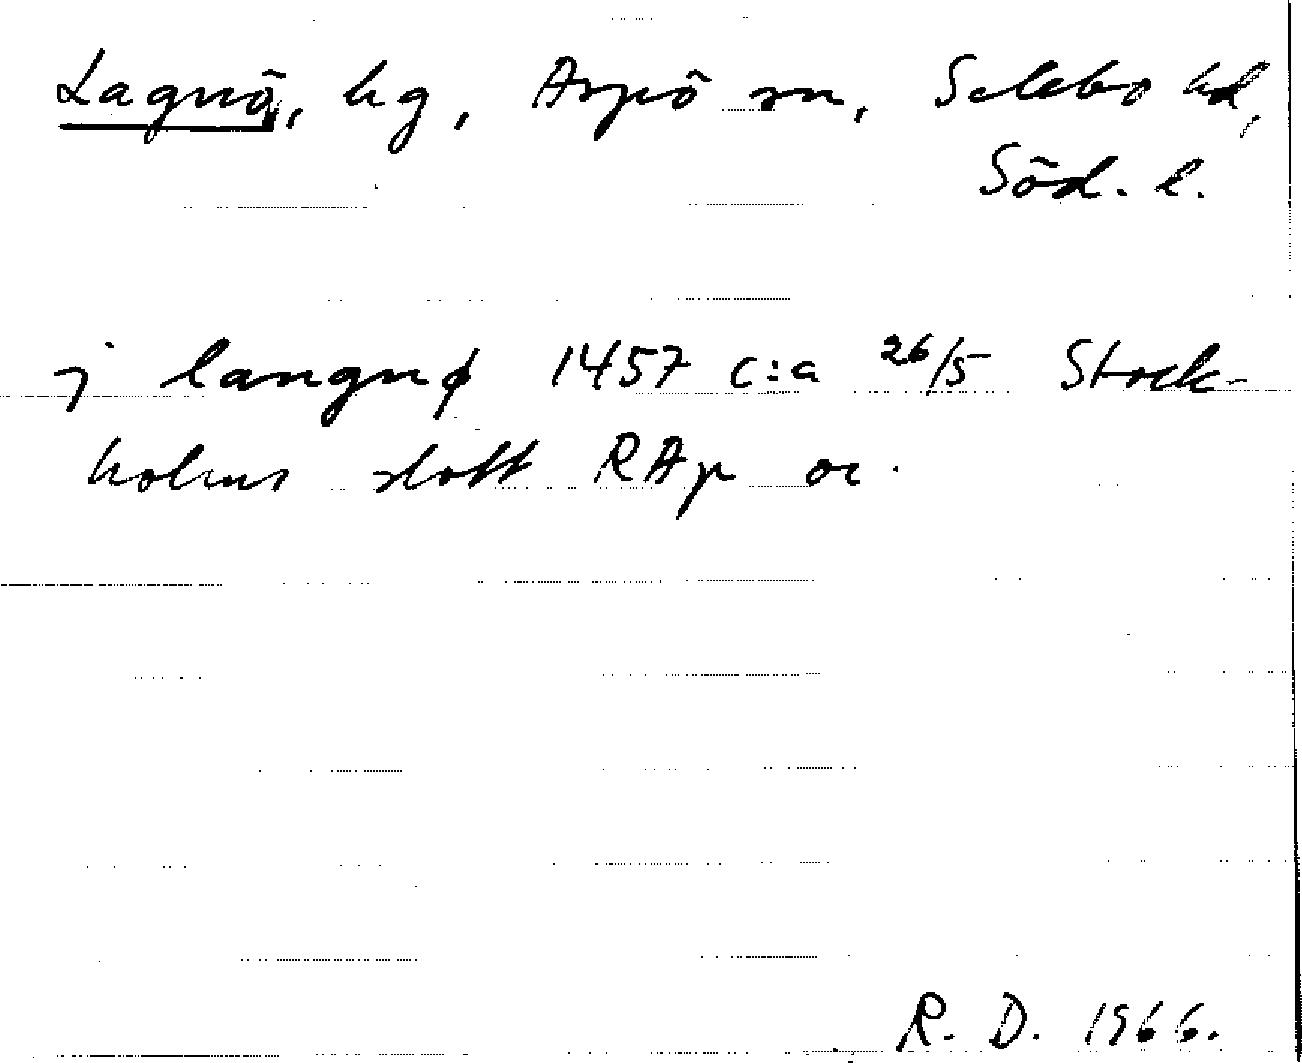 Lagnö, hg, Aspö sn, Selebo hd,
Söd. l.
j langnø 1457 c:a 26/5 Stock-
holms slott RAp or.
R. D. 1966.